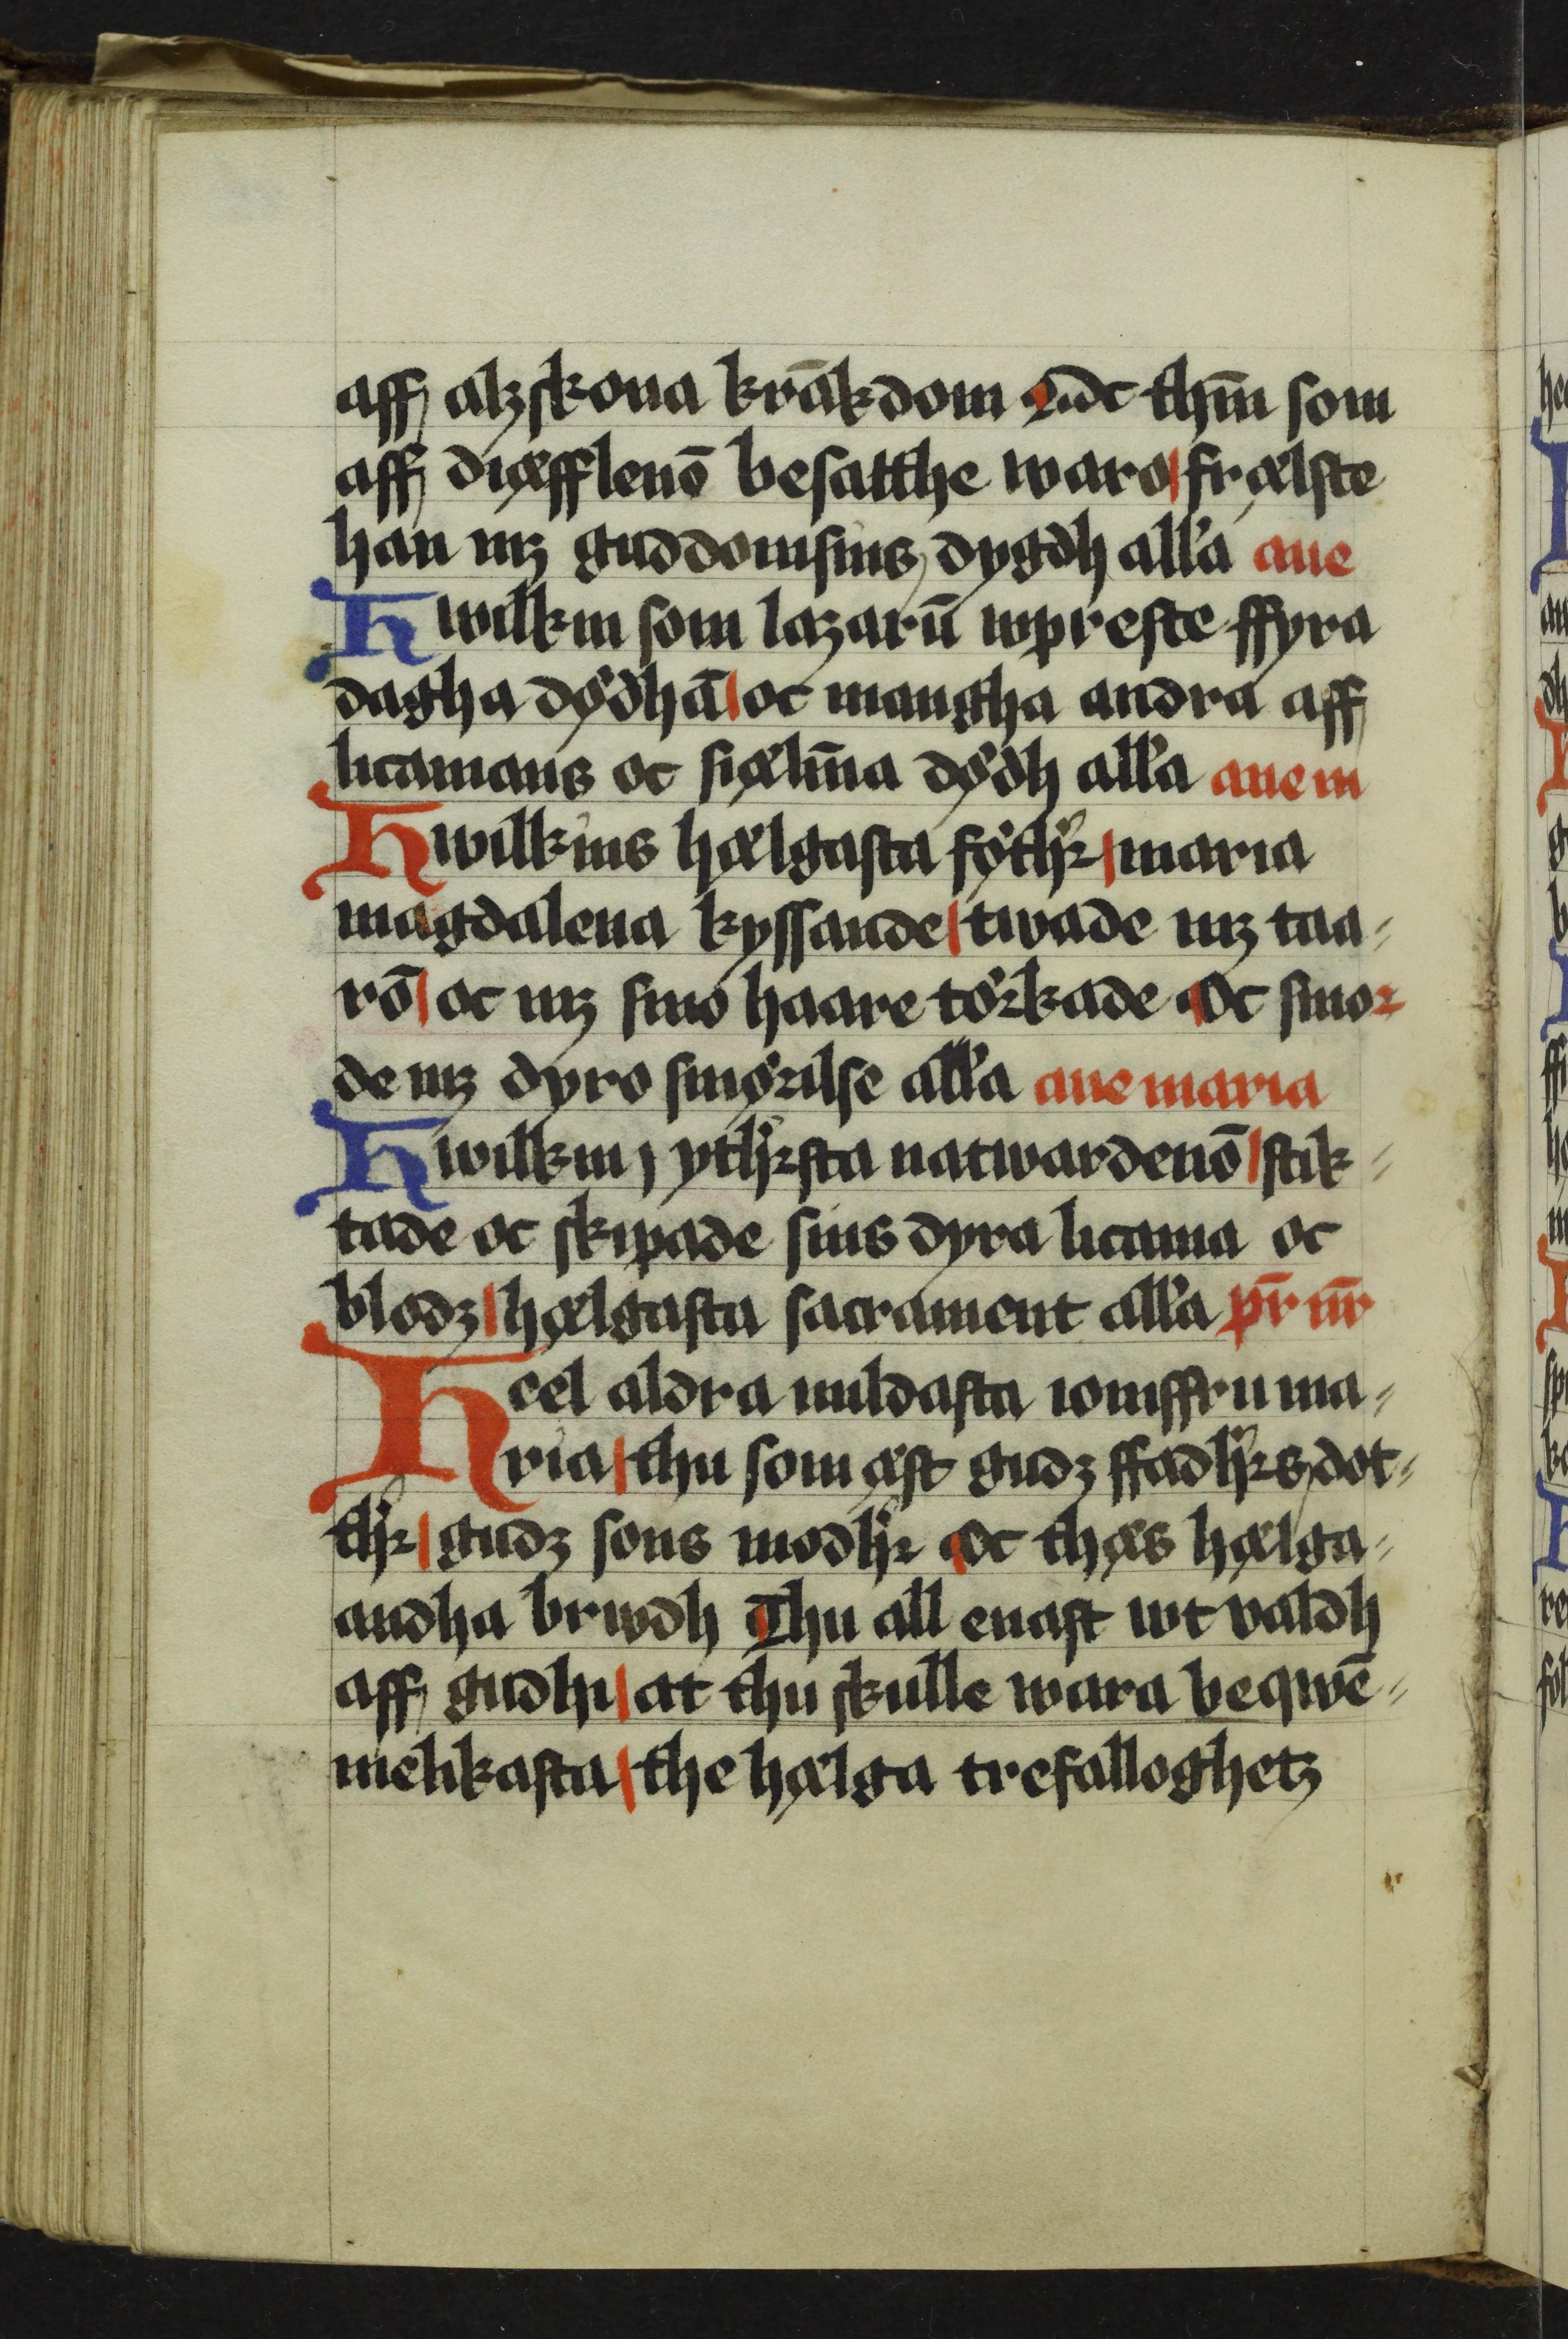 aff alzskona krākdom Oc thm̄ som
aff diæfflenō besatthe waro frælste
han mz guddomsins dygdh all'a aue
Hwilkin som lazarū wpreste ffyra
dagha dødhā oc mangha andra aff
licamans oc siælīna dødh all'a aue m
Hwilkins hælgasta føth'r maria
magdalena kyssande twade mz taa=
rō oc mz sino haare tørkade Oc smor
de mz dyro smørilse all'a aue maria
Hwilkin j yth'rsta natwardenō stik=
tade oc skipade sins dyra licama oc
blodz hælgasta sacrament all'a pr̄ nr̄
Heel aldra mildasta iomffru ma=
ria thu som æst gudz ffadh'rs dot=
th'r gudz sons modh'r Oc thæs hælga=
andha brwdh Thu all enast wt valdh
aff gudhi at thu skulle wara beqwē=
melikasta the hælga trefalloghetz